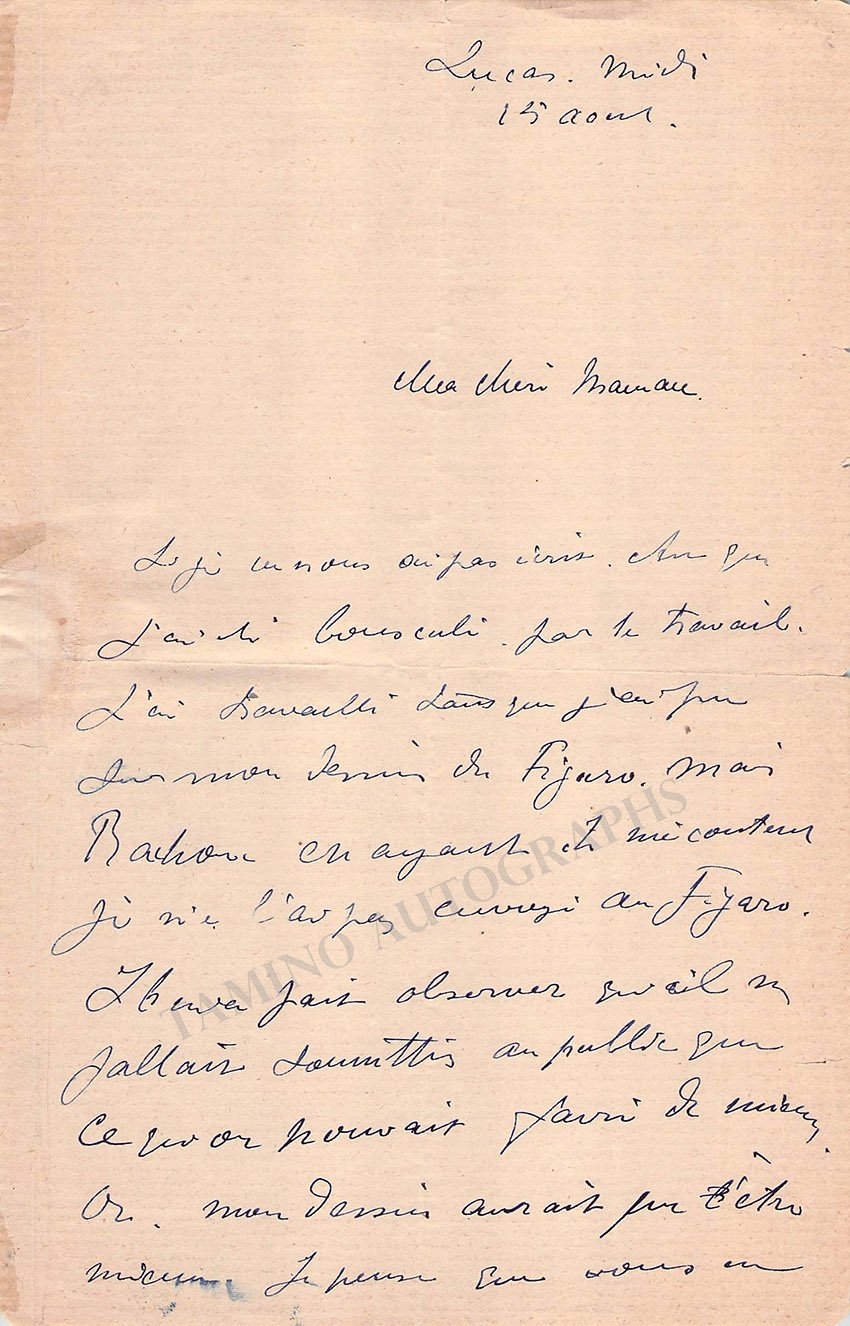 Lucas. Midi
15 aout.
Ma chère Maman.
Si je ne vous ai pas écrit. c'est que
j'ai été bousculé par le travail.
J'ai travaillé tant que j'ai pu
sur mon dessin du Figaro. mais
Rachou en ayant été mécontent
je ne l'ai pas envoyé au Figaro.
Il m'a fait observer qu'il ne
fallait soumettre au public que
ce qu'on pouvait faire de mieux.
Or. mon dessin aurait pu être
mieux. Je pense que vous en
TAMINO AUTOGRAPHS